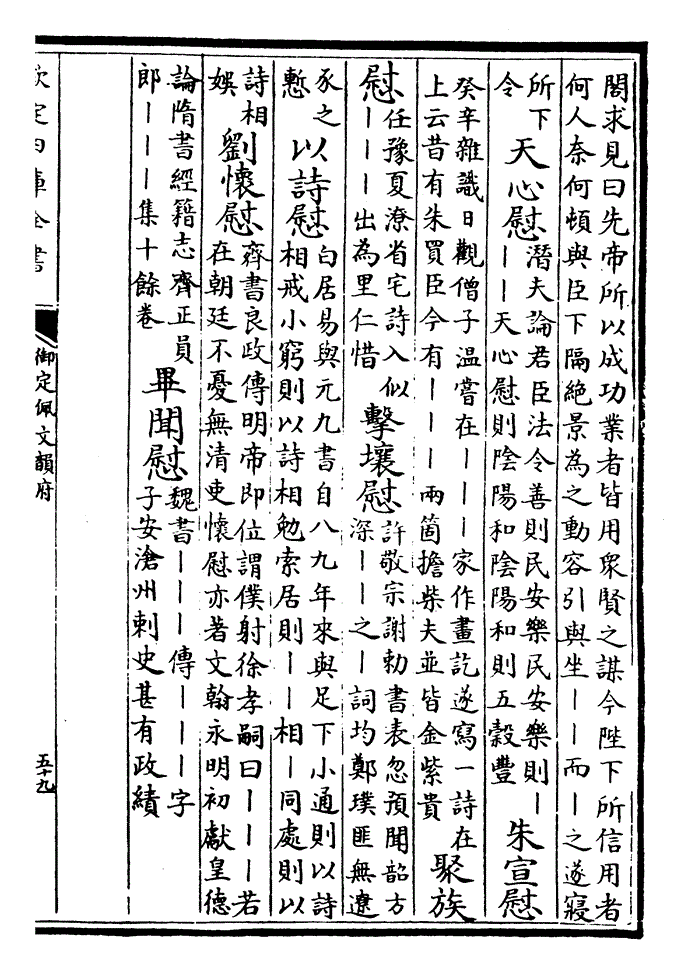 閤求見曰先帝所以成功業者皆用衆賢之謀今陛下所信用者
何人奈何頓與臣下隔絕景為之動容引與坐丨丨而丨之遂寢
所下
令
天心慰
潛夫論君臣法令善則民安樂民安樂則丨
丨丨天心慰則陰陽和陰陽和則五穀豐
朱宣慰
癸辛雜識日觀僧子溫嘗在丨丨丨家作畫訖遂寫一詩在
上云昔有朱買臣今有丨丨丨兩箇擔柴夫並皆金紫貴
聚族
慰
任豫夏潦省宅詩入似
丨丨丨出為里仁惜
擊壤慰
許敬宗謝勅書表忽預聞韶方
深丨丨之丨詞均鄭璞匪無遼
豕之
慙
以詩慰
白居易與元九書自八九年來與足下小通則以詩
相戒小窮則以詩相勉索居則丨丨相丨同處則以
詩相
娛
劉懷慰
齊書良政傳明帝即位謂僕射徐孝嗣曰丨丨丨若
在朝廷不憂無清吏懷慰亦著文翰永明初獻皇德
論隋書經籍志齊正員
郎丨丨丨集十餘卷
畢聞慰
魏書丨丨丨傳丨丨丨字
子安滄州刺史甚有政績
欽定四庫全書
御定佩文韻府
五十九